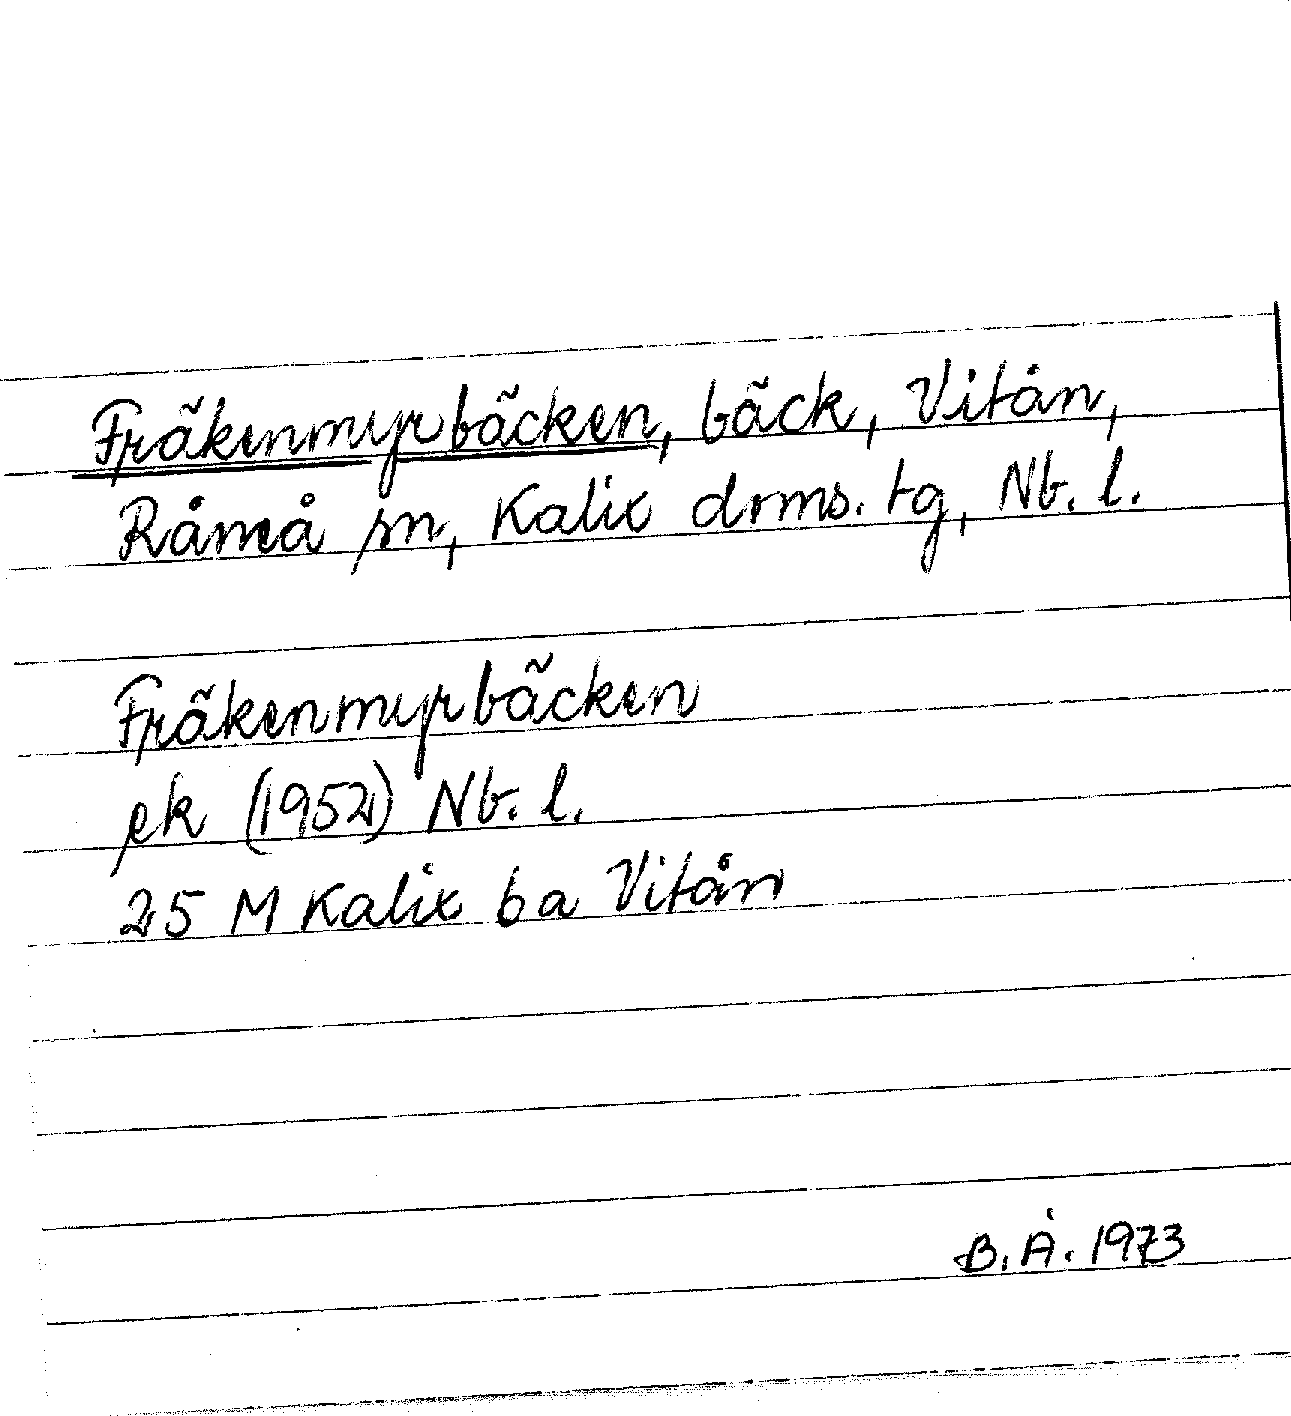 Fräkenmyrbäcken, bäck, Vitån,
Råneå sn, Kalix drms. tg, Nb. l.
Fräkenmyrbäcken
ek (1952) Nb. l.
25 M Kalix ba Vitån
B. Å. 1973